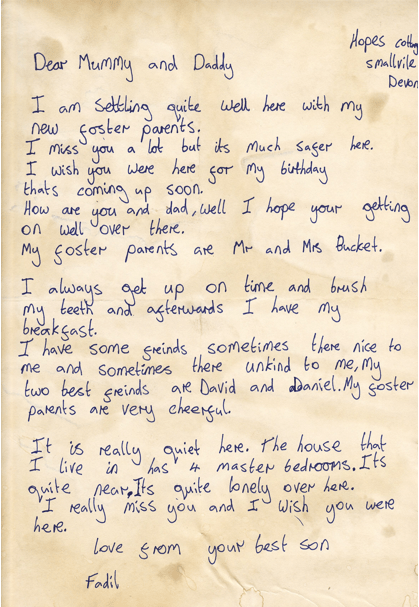 Hopes cottag
smallvile
Devon
Dear Mummy and Daddy
I am settling quite well here with my
new foster parents.
I miss you a lot but its much safer here.
I wish you were here for my birthday
thats coming up soon.
How are you and dad, well I hope your getting
on well over there.
My foster parents are Mr and Mrs Bucket.
I always get up on time and brush
my teeth and afterwards I have my
breakfast.
I have some freinds sometimes there nice to
me and sometimes there unkind to me, My
two best freinds are David and Daniel. My foster
parents are very cheerful.
It is really quiet here. The house that
I live in has 4 master bedrooms. Its
quite near. Its quite lonely over here.
I really miss you and I wish you were
here.
love from your best son
Fadil